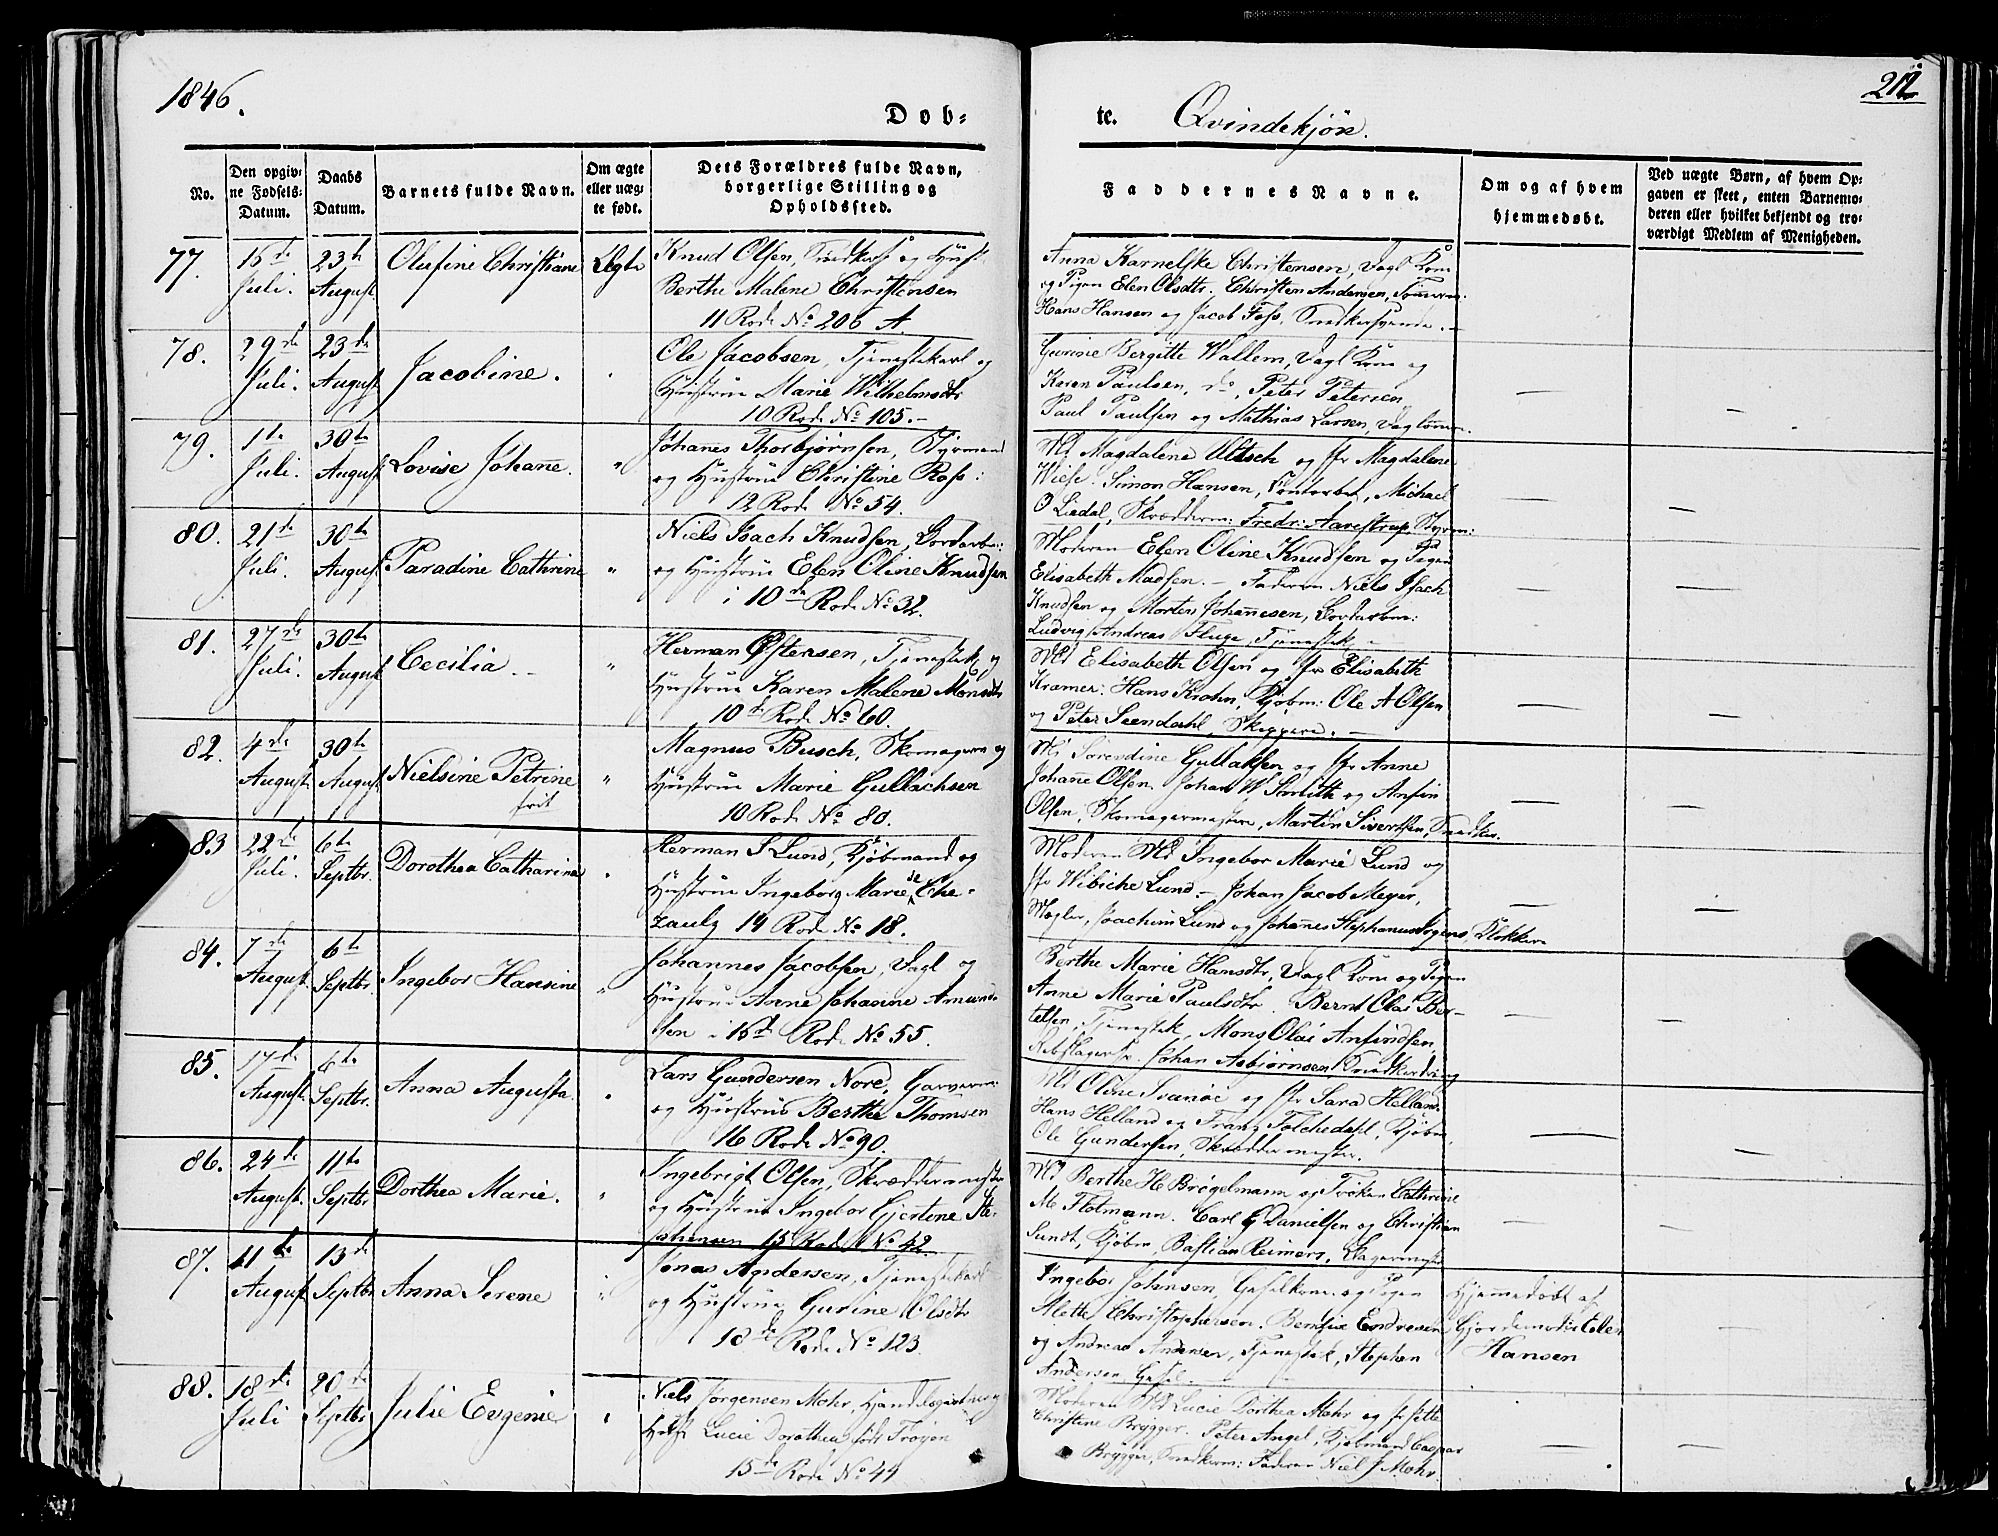 1846.
Døb-
te. Qvindekjøn.
212
No.
Den opgiv-
ne Fødsels-
Datum.
Daabs
Datum.
Barnets fulde Navn.
Om ægte
eller uæg-
te født.
Dets Forældres fulde Navn,
borgerlige Stilling og
Opholdssted.
Faddernes Navne.
Om og af hvem
hjemmedøbt.
Ved uægte Børn, af hvem Op-
gaven er skeet, enten Barnemo-
deren eller hvilket bekjendt og tro-
værdigt Medlem af Menigheden.
77. 15de Juli. 23de August Olufine Christiane Ægte
Knud Olsen, og
Berthe Malene Christensen
11 Rode No 206 A.
Anna Karnelske Christensen, Vagl Kone
og Pigen Elen Olsdtr. Christen Andersen,
Hans Hansen og Jacob Foss,
78. 29de Juli. 23de August Jacobine.
Ole Jacobsen, Tjenestekarl og
Hustrue Marie Wilhelmsdtr
10 Rode No 105.
Gurine Bergitte Wallem, Vagl Kone og
Karen Paulsen, do, Peter Petersen
Paul Paulsen og Mathias Larsen,
79. 1te Juli. 30te August Lovise Johane. "
Johanes Thorbjørnsen, Styrmand
og Hustrue Christine Ross:
12 Rode No 54.
Md Magdalena Ultsch og Jfr Magdalene
Wiese. Simon Hansen, Michael
O Liedal, Skrædderm: Fredr: Aarestrup, Styrm:
80. 21de Juli. 30te August Paradine Cathrine "
Niels Isach Knudsen,
og Hustrue Elen Oline Knudsen
i 10de Rode No 32.
Moderen Elen Oline Knudsen og Pigen
Elisabeth Madsen. Faderen Niels Isach
Knudsen og Morten Johannesen,
Ludvig Andreas Fluge, Tjenestek
81. 27de Juli. 30te August Cecilia. "
Herman Østensen, Tjenestek og
Hustrue Karen Malene Monsdtr
10de Rode No 60.
Md Elisabeth Olsen og Jfr Elisabeth
Kramer. Hans Krohn, Kjøbm: Ole A Olsen
og Peter Svendahl, Skippere.
82. 4de August 30te August Nielsine Petrine "
Magnus Busch, Skomagerm og
Hustrue Marie Gullachsen
10 Rode No 80.
Md Sørendine Gullaksen og Jfr Anne
Johanne Olsen. Johan W Smith og Anfin
Olsen, Skomagermestere, Martin Sivertsen,
83 22de Juli. 6te Septbr. Dorothea Catharina
Herman S Lund, Kjøbmand og
Hustrue Ingeborg Marie de Che-
zaulx 14 Rode No 18.
Moderen Md Ingebor Marie Lund og
Jfr Wibiche Lund. Johan Jacob Meyer,
Mægler, Joachim Lund og Johannes Stephanus Klokker
84. 7de August 6te Septbr. Ingebor Hansine "
Johannes Jacobsen, Vagl og
Hustrue Anne Johanne Amund-
sen i 16de Rode No 55.
Berthe Marie Hansdtr, Vagl Kone og Pigen
Anne Marie Paulsdtr. Bernt Olai Ber-
telsen, Tjenestek, Mons Olai Anfindsen
Johan Asbjørnsen
85. 17de August 6te Septbr. Anna Augusta.
Lars Gundersen Nore, Garverm:
og Hustrue Berthe Thomsen
16 Rode No 90.
Md Oline Svanøe og Jfr Sara Helland.
Hans Helland og Frantz Kjøbm.
Ole Gundersen, Skræddermester.
86. 24de August 11te Septbr. Dorthea Marie. "
Ingebrigt Olsen, Skræddermester
og Hustrue Ingebor Gjertine Ste-
phensen 15 Rode No 42.
Md Berthe H Brøgelmann og Frøken Cathrine
M Flotmann. Carl G Danielsen og Christian
Sundt, Kjøbm, Bastian Reimers,
87. 11te August 13de Septbr. Anna Serene "
Jonas Andersen, Tjenestekarl
og Hustrue Gurine Olsdtr
18de Rode No 123
Ingebor Johnsen, og Pigen
Alette Christophersen, Endresen
og Andreas Andersen, Tjenestek, Stephen
Andersen,
Hjemmedøbt af
Gjordemoder Elen
Hansen
88. 18de Juli 20de Septbr Julie Evgenie
Niels Jørgensen Mohr, og
Lucie Dorothea født Trøyen
15de Rode No 44
Moderen Md Lucie Dorthea Mohr og Jfr Jette
Christine Brygger. Peter Angel, Kjøbmand Caspar
Brygger, Faderen Niel J Mohr